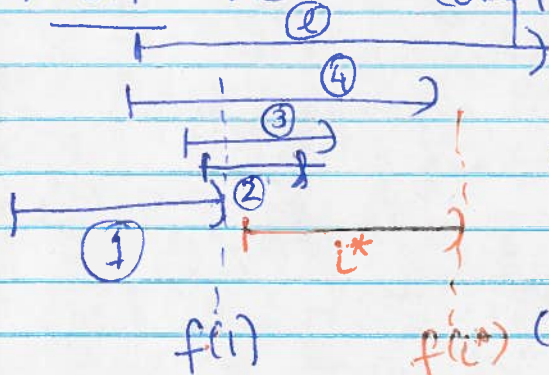 ℓ
④
③
②
①
i*
f(1)
f(i*)